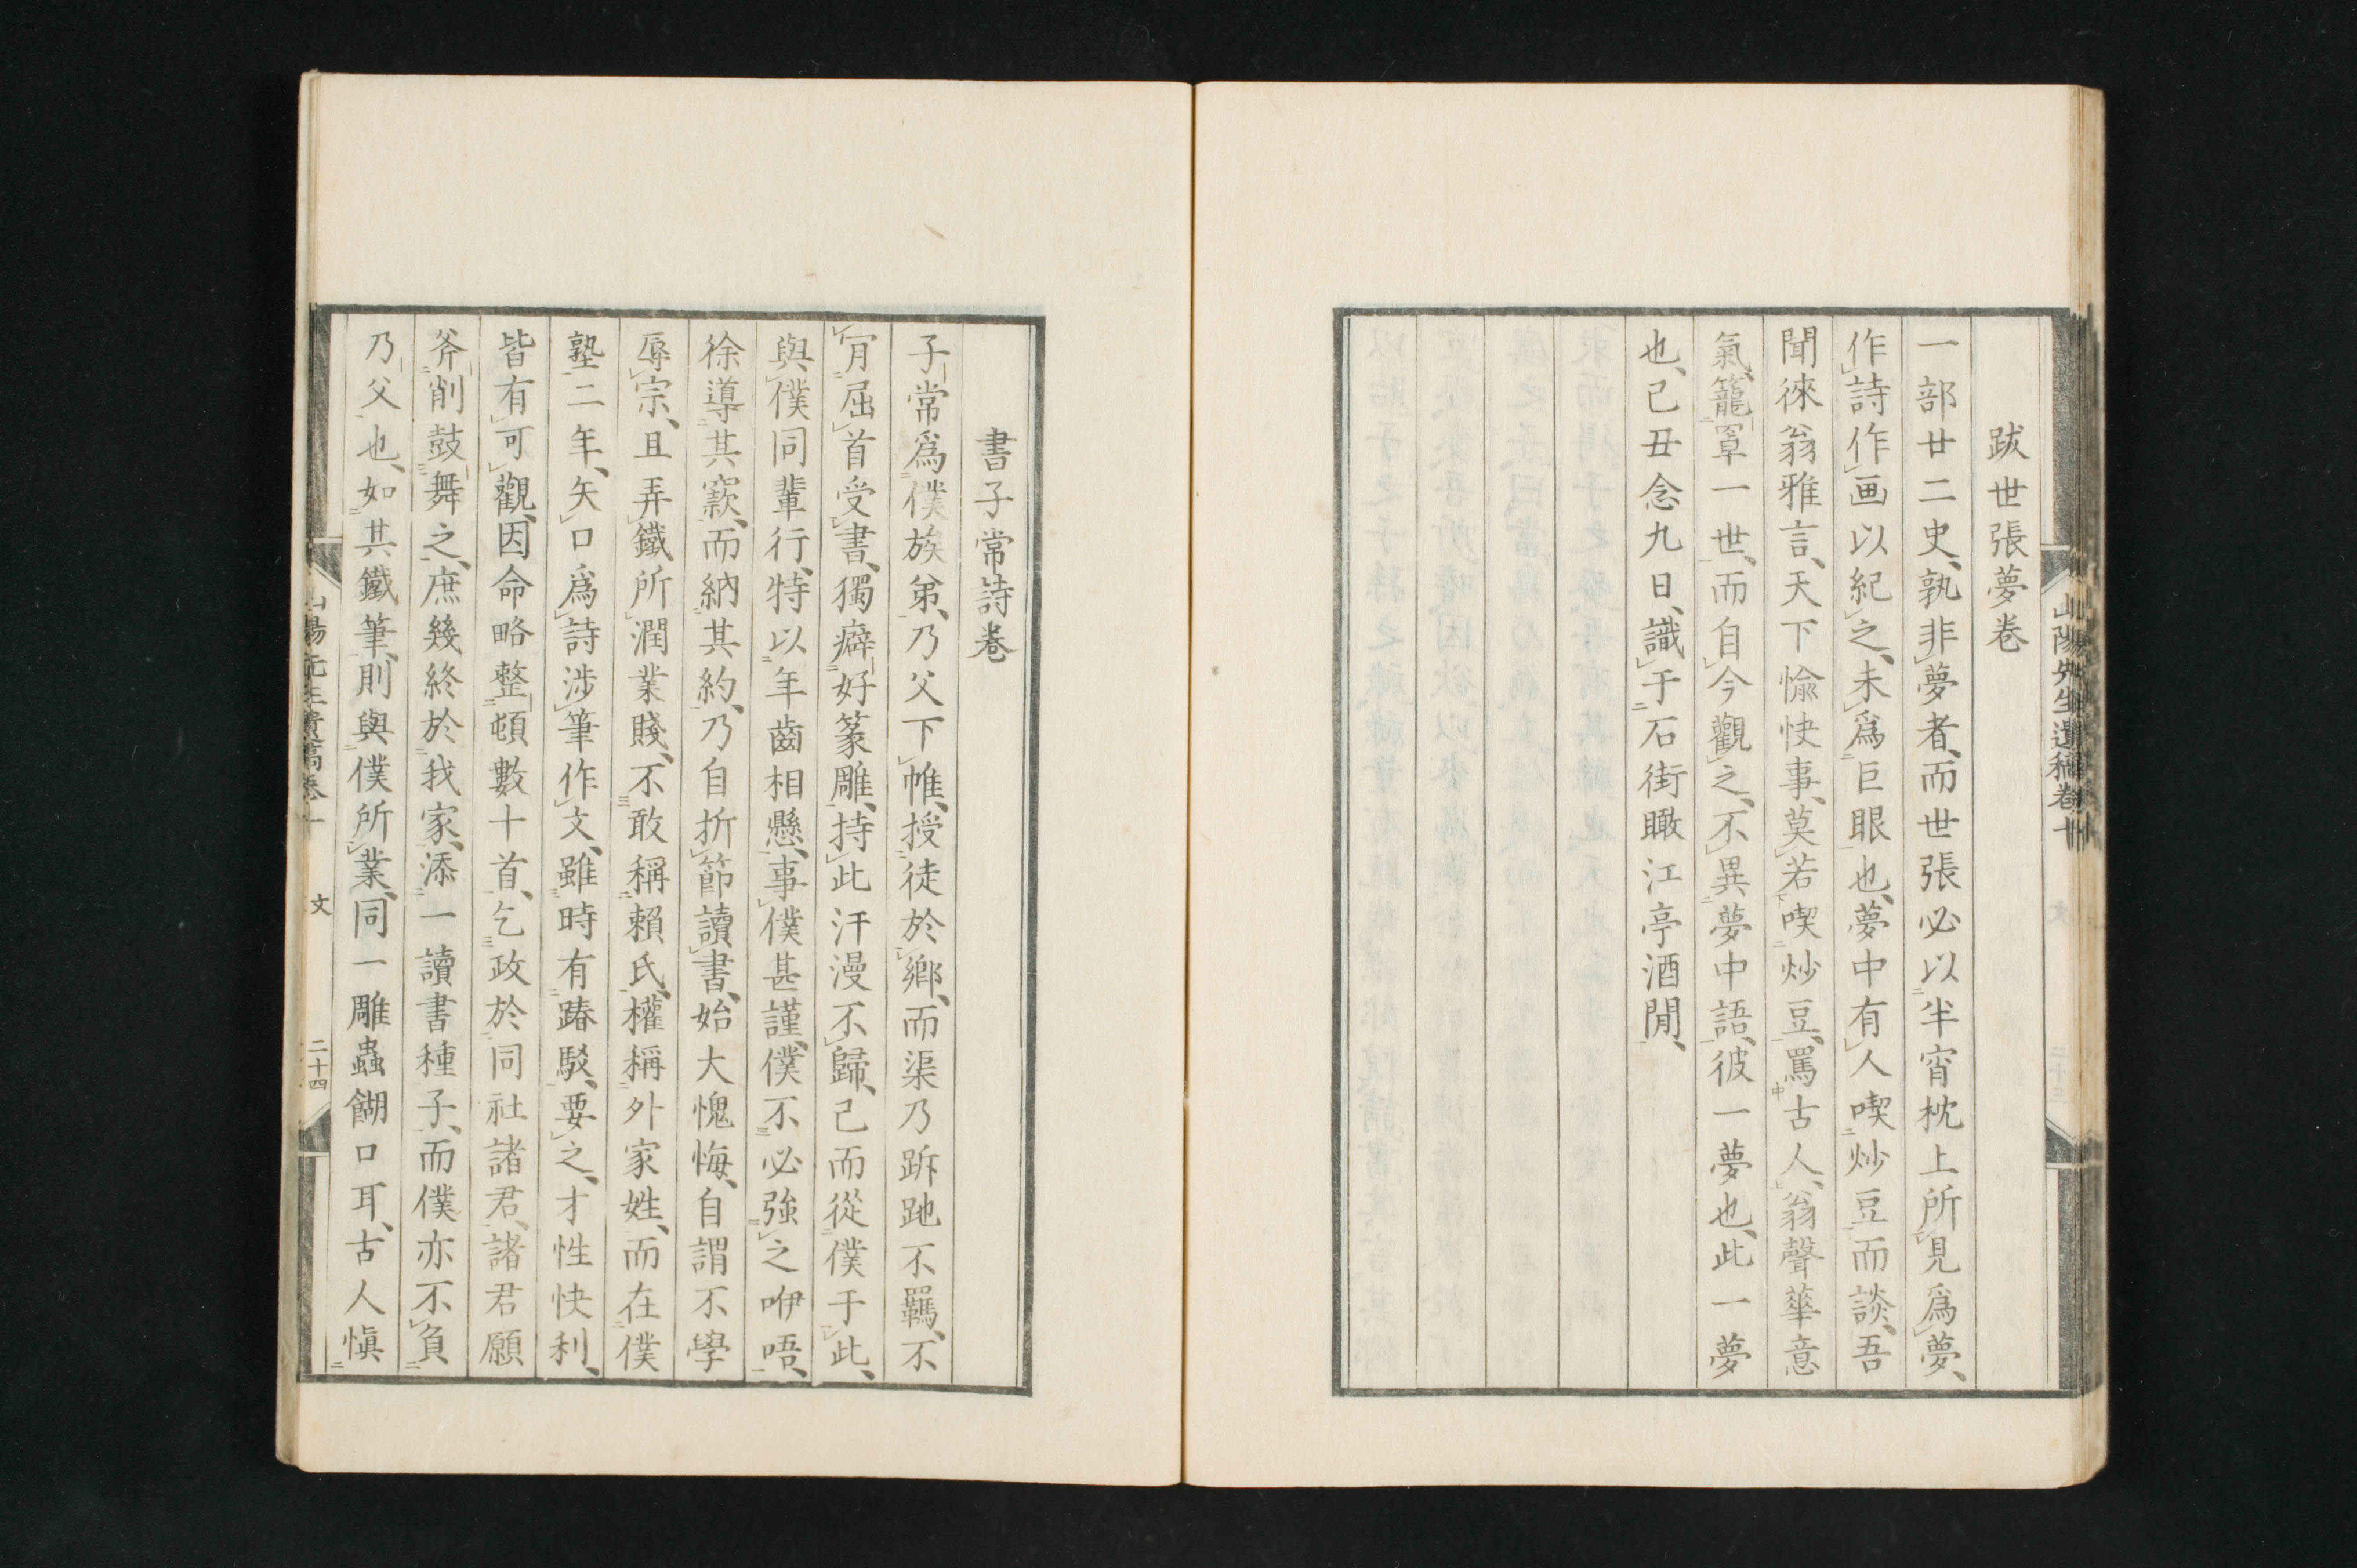 跋世張夢卷
一部廿二史、孰非夢者、而世張必以半宵枕上所見爲夢、
作詩作画以紀之、未爲巨眼也、夢中有人喫炒豆而談、吾
聞徠翁雅言、天下愉快事、莫若喫炒豆、罵古人、翁聲華意
氣、籠罩一世、而自今觀之、不異夢中語、彼一夢也、此一夢
也、己丑念九日、識于石街瞰江亭酒閒、
書子常詩卷
子常爲僕族弟、乃父下帷、授徒於鄉、而渠乃跅跎不羈、不
肎屈首受書、獨癖好篆雕、持此汗漫不歸、己而從僕于此、
與僕同輩行、特以年齒相懸、事僕甚謹、僕不必強之咿唔、
徐導其窾、而納其約、乃自折節讀書、始大愧悔、自謂不學
辱宗、且弄鐵、所潤業賤、不敢稱賴氏、權稱外家姓、而在僕
塾二年、矢口爲詩、涉筆作文、雖時有踳駁、要之、才性快利、
皆有可觀、因命略整頓數十首、乞政於同社諸君、諸君願
斧削鼓舞之、庶幾終於我家、添一讀書種子、而僕亦不負
乃父也、如其鐵筆、則與僕所業、同一雕蟲餬口耳、古人愼
山陽先生遺稿卷十
文
二十四